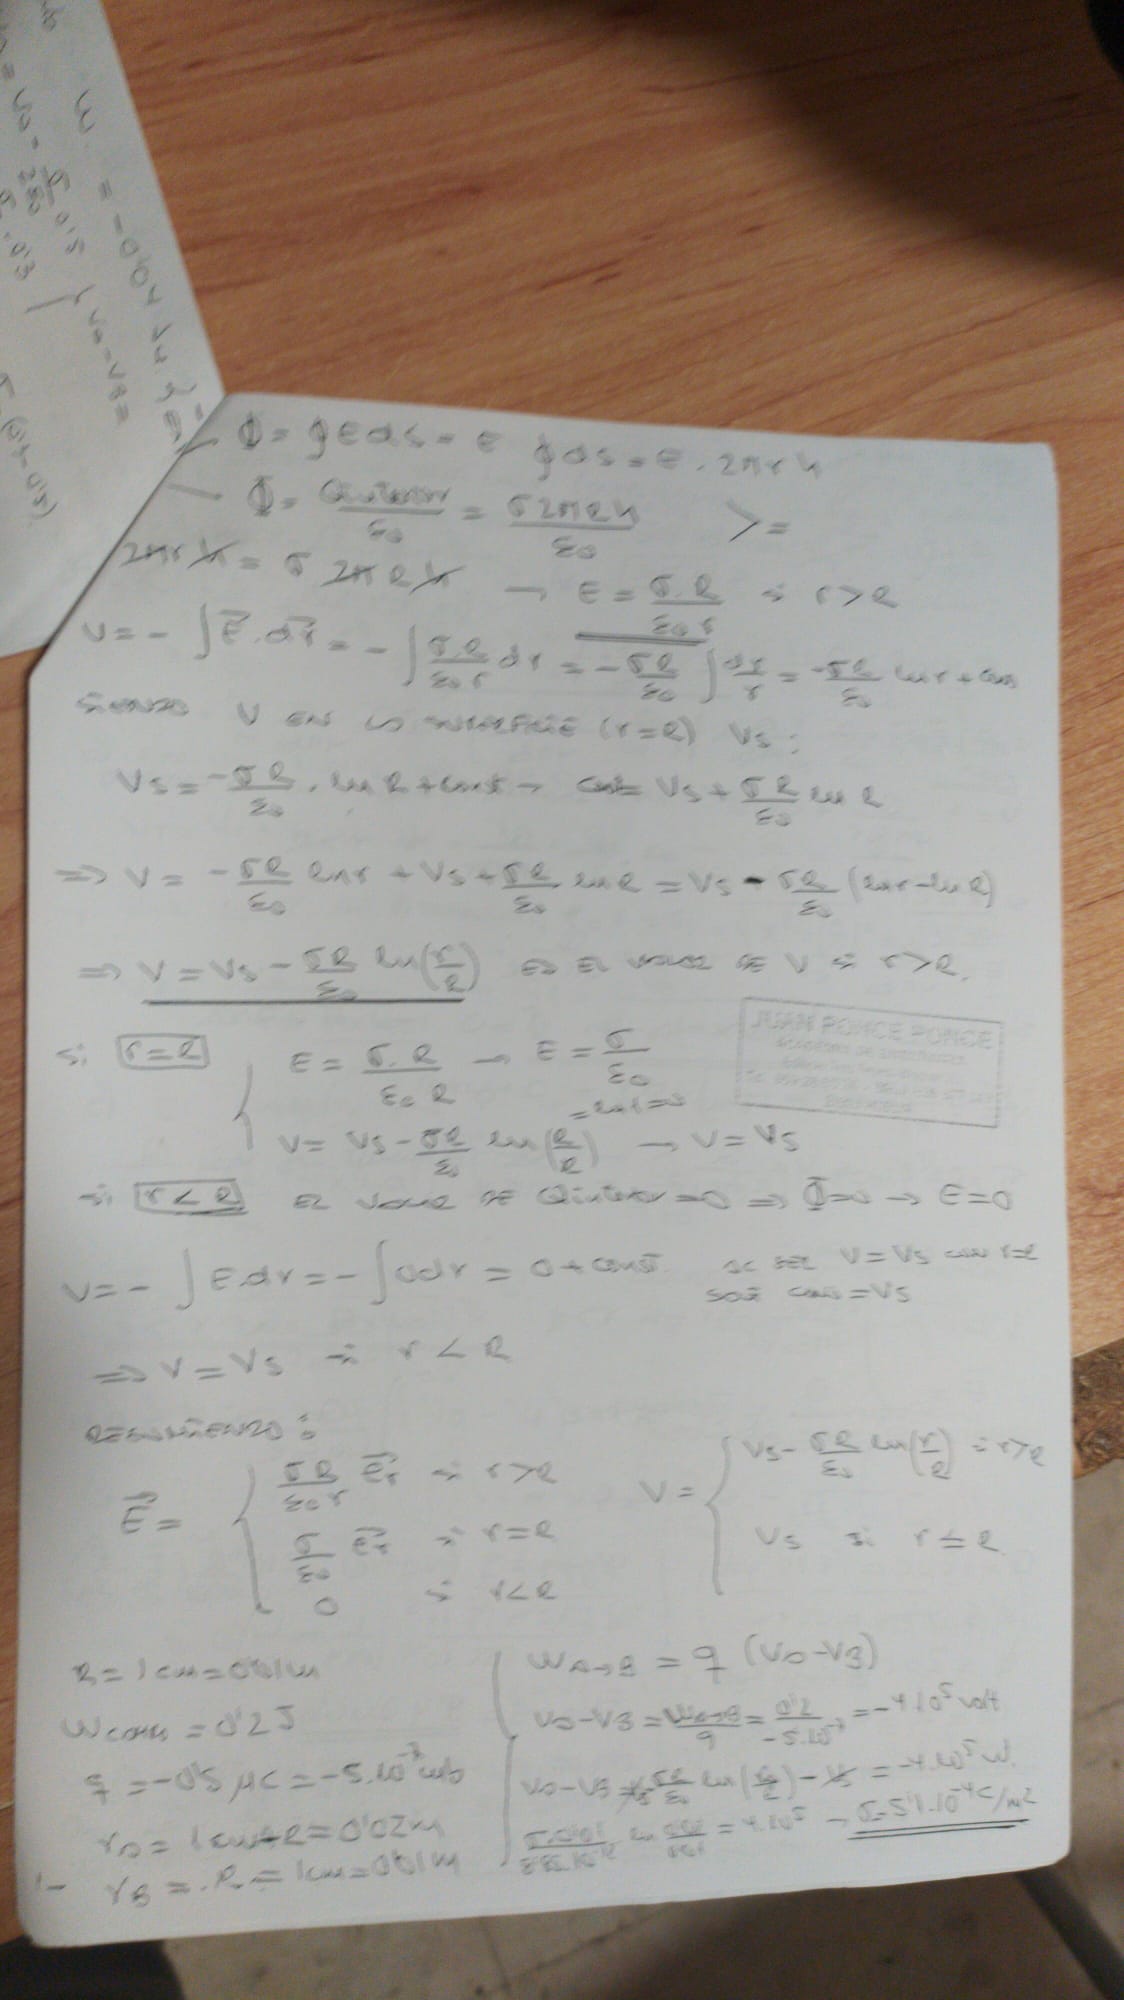 Φ = ∮ E ds = E ∮ ds = E · 2πrh
Φ = Qinterior/ε₀ = σ2πRh/ε₀ } =
2πrh = σ 2πRh → E = σ·R/ε₀r si r>R
V = - ∫ E⃗·dr⃗ = - ∫ σR/ε₀r dr = - σR/ε₀ ∫ dr/r = -σR/ε₀ ln r + cons
SIENDO V EN LA SUPERFICIE (r=R) Vs:
Vs = -σR/ε₀ · ln R + const → const = Vs + σR/ε₀ ln R
⇒ V = -σR/ε₀ ln r + Vs + σR/ε₀ ln R = Vs - σR/ε₀ (ln r - ln R)
⇒ V = Vs - σR/ε₀ ln(r/R) ES EL VALOR DE V si r>R.
JUAN PONCE PONCE
si r=R { E = σ·R/ε₀R → E = σ/ε₀
= ln 1 = 0
V = Vs - σR/ε₀ ln(R/R) → V = Vs
si r<R EL VALOR DE Qinterior = 0 ⇒ Φ=0 → E=0
V = - ∫ E·dr = - ∫ 0dr = 0 + const. AL SER V=Vs con r=R
SERÁ cons = Vs
⇒ V = Vs si r < R
RESUMIENDO:
E⃗ = { σR/ε₀r e⃗r si r>R
σ/ε₀ e⃗r si r=R
0 si r<R
V = { Vs - σR/ε₀ ln(r/R) si r>R
Vs si r≤R
R = 1cm = 0'01m
Wcam = 0'2J
q = -0'5 μC = -5·10⁻⁷ culb
rA = 1cm+R = 0'02m
rB = R = 1cm = 0'01m
W A→B = q (VA-VB)
VA-VB = W A→B/q = 0'2/-5·10⁻⁷ = -4·10⁵ volt
VA-VB = Vs - σR/ε₀ ln(rA/R) - Vs = -4·10⁵ V.
σ·0'01/8'85·10⁻¹² ln 0'02/0'01 = 4·10⁵ → σ = 5'1·10⁻⁴ C/m²